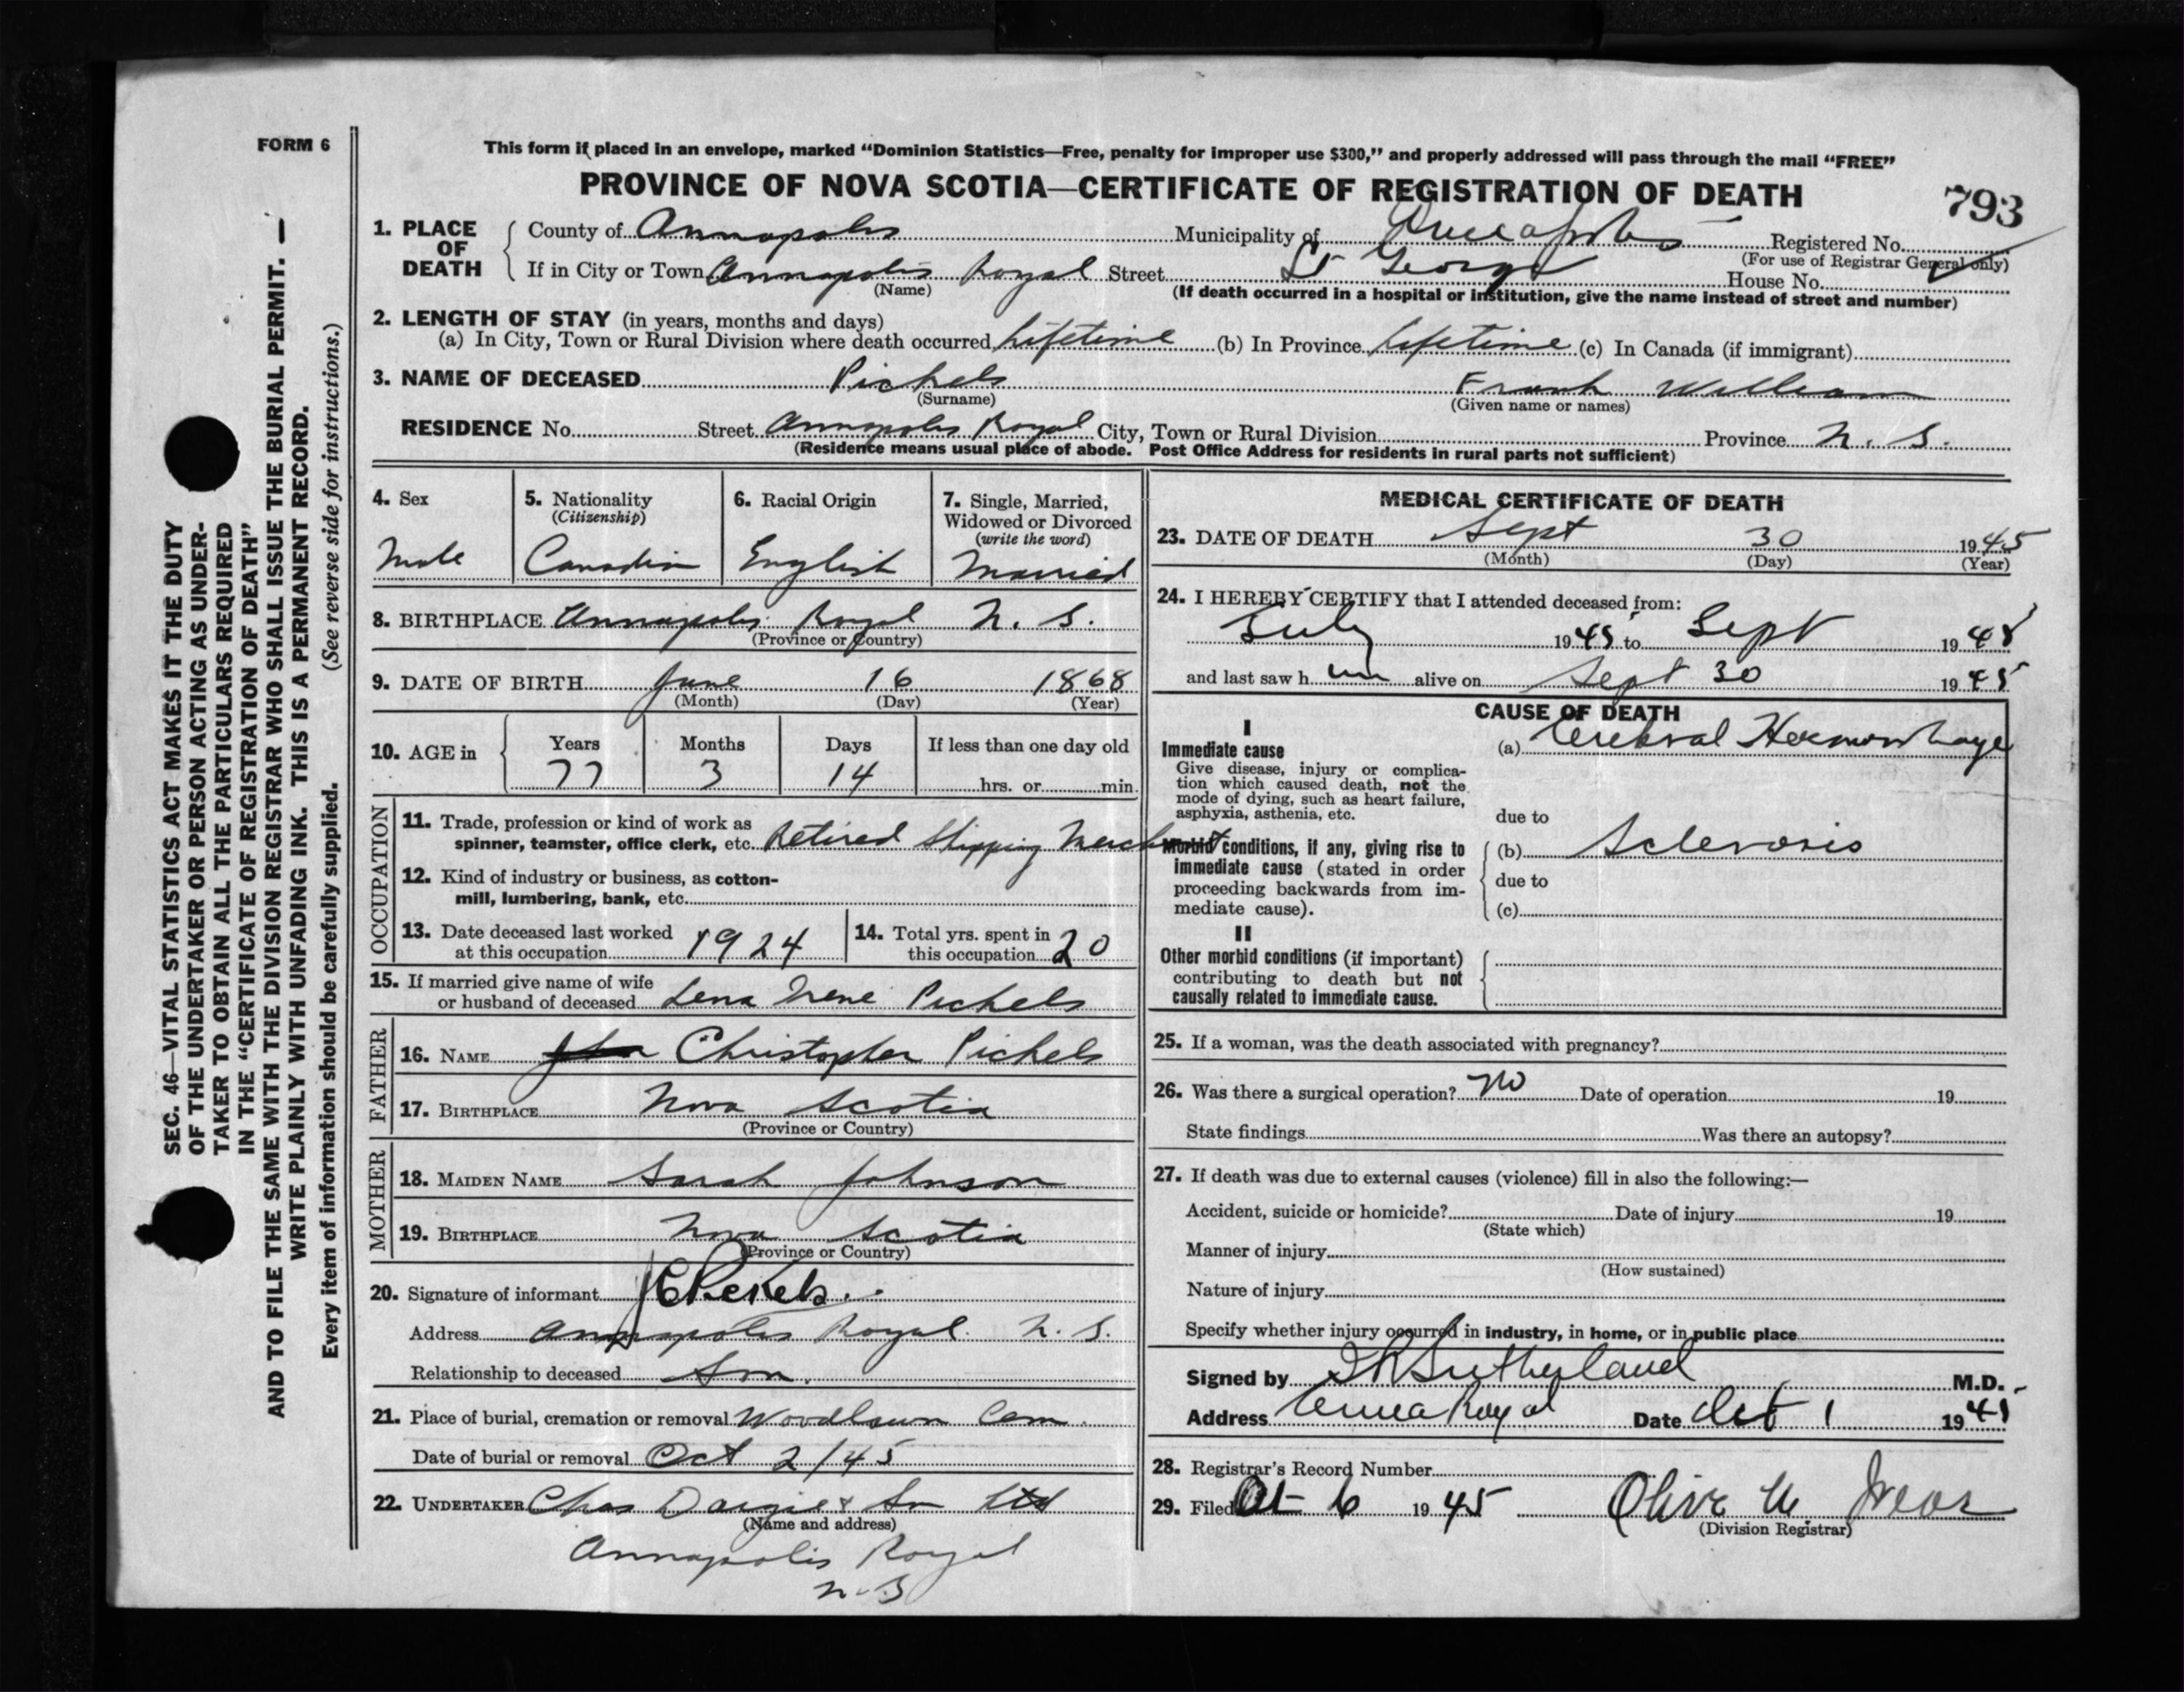 FORM 6
This form if placed in an envelope, marked "Dominion Statistics—Free, penalty for improper use $300," and properly addressed will pass through the mail "FREE"
PROVINCE OF NOVA SCOTIA—CERTIFICATE OF REGISTRATION OF DEATH
793
1. PLACE OF DEATH
County of Annapolis Municipality of Annapolis Registered No.
(For use of Registrar General only)
If in City or Town Annapolis Royal Street St George House No.
(Name)
(If death occurred in a hospital or institution, give the name instead of street and number)
2. LENGTH OF STAY (in years, months and days)
(a) In City, Town or Rural Division where death occurred Lifetime (b) In Province Lifetime (c) In Canada (if immigrant)
3. NAME OF DECEASED Pickels Frank William
(Surname) (Given name or names)
RESIDENCE No. Street Annapolis Royal City, Town or Rural Division Province N. S.
(Residence means usual place of abode. Post Office Address for residents in rural parts not sufficient)
4. Sex
Male
5. Nationality
(Citizenship)
Canadian
6. Racial Origin
English
7. Single, Married,
Widowed or Divorced
(write the word)
Married
8. BIRTHPLACE Annapolis Royal N. S.
(Province or Country)
9. DATE OF BIRTH June 16 1868
(Month) (Day) (Year)
10. AGE in Years Months Days If less than one day old
77 3 14 hrs. or min.
OCCUPATION
11. Trade, profession or kind of work as
spinner, teamster, office clerk, etc. Retired Shipping Merchant
12. Kind of industry or business, as cotton-
mill, lumbering, bank, etc.
13. Date deceased last worked
at this occupation 1924
14. Total yrs. spent in
this occupation 20
15. If married give name of wife
or husband of deceased Lena Irene Pickels
FATHER
16. NAME Christopher Pickels
17. BIRTHPLACE Nova Scotia
(Province or Country)
MOTHER
18. MAIDEN NAME Sarah Johnson
19. BIRTHPLACE Nova Scotia
(Province or Country)
20. Signature of informant Pickels
Address Annapolis Royal N. S.
Relationship to deceased Son.
21. Place of burial, cremation or removal Woodlawn Cem.
Date of burial or removal Oct 2/45
22. UNDERTAKER Chas Dargie & Son Ltd
(Name and address)
Annapolis Royal
N-S
MEDICAL CERTIFICATE OF DEATH
23. DATE OF DEATH Sept 30 1945
(Month) (Day) (Year)
24. I HEREBY CERTIFY that I attended deceased from:
July 1945 to Sept 1945
and last saw h im alive on Sept 30 1945
CAUSE OF DEATH
I
Immediate cause
Give disease, injury or complica-
tion which caused death, not the
mode of dying, such as heart failure,
asphyxia, asthenia, etc.
(a) Cerebral Hemorrhage
due to
Morbid conditions, if any, giving rise to
immediate cause (stated in order
proceeding backwards from im-
mediate cause).
(b) Sclerosis
due to
(c)
II
Other morbid conditions (if important)
contributing to death but not
causally related to immediate cause.
25. If a woman, was the death associated with pregnancy?
26. Was there a surgical operation? No Date of operation 19
State findings Was there an autopsy?
27. If death was due to external causes (violence) fill in also the following:—
Accident, suicide or homicide? Date of injury 19
(State which)
Manner of injury
(How sustained)
Nature of injury
Specify whether injury occurred in industry, in home, or in public place
Signed by Sutherland M.D.
Address Anna Royal Date Oct 1 1945
28. Registrar's Record Number
29. Filed Oct 6 1945 Olive
(Division Registrar)
SEC. 46—VITAL STATISTICS ACT MAKES IT THE DUTY
OF THE UNDERTAKER OR PERSON ACTING AS UNDER-
TAKER TO OBTAIN ALL THE PARTICULARS REQUIRED
IN THE "CERTIFICATE OF REGISTRATION OF DEATH"
AND TO FILE THE SAME WITH THE DIVISION REGISTRAR WHO SHALL ISSUE THE BURIAL PERMIT. —
WRITE PLAINLY WITH UNFADING INK. THIS IS A PERMANENT RECORD.
Every item of information should be carefully supplied. (See reverse side for instructions.)